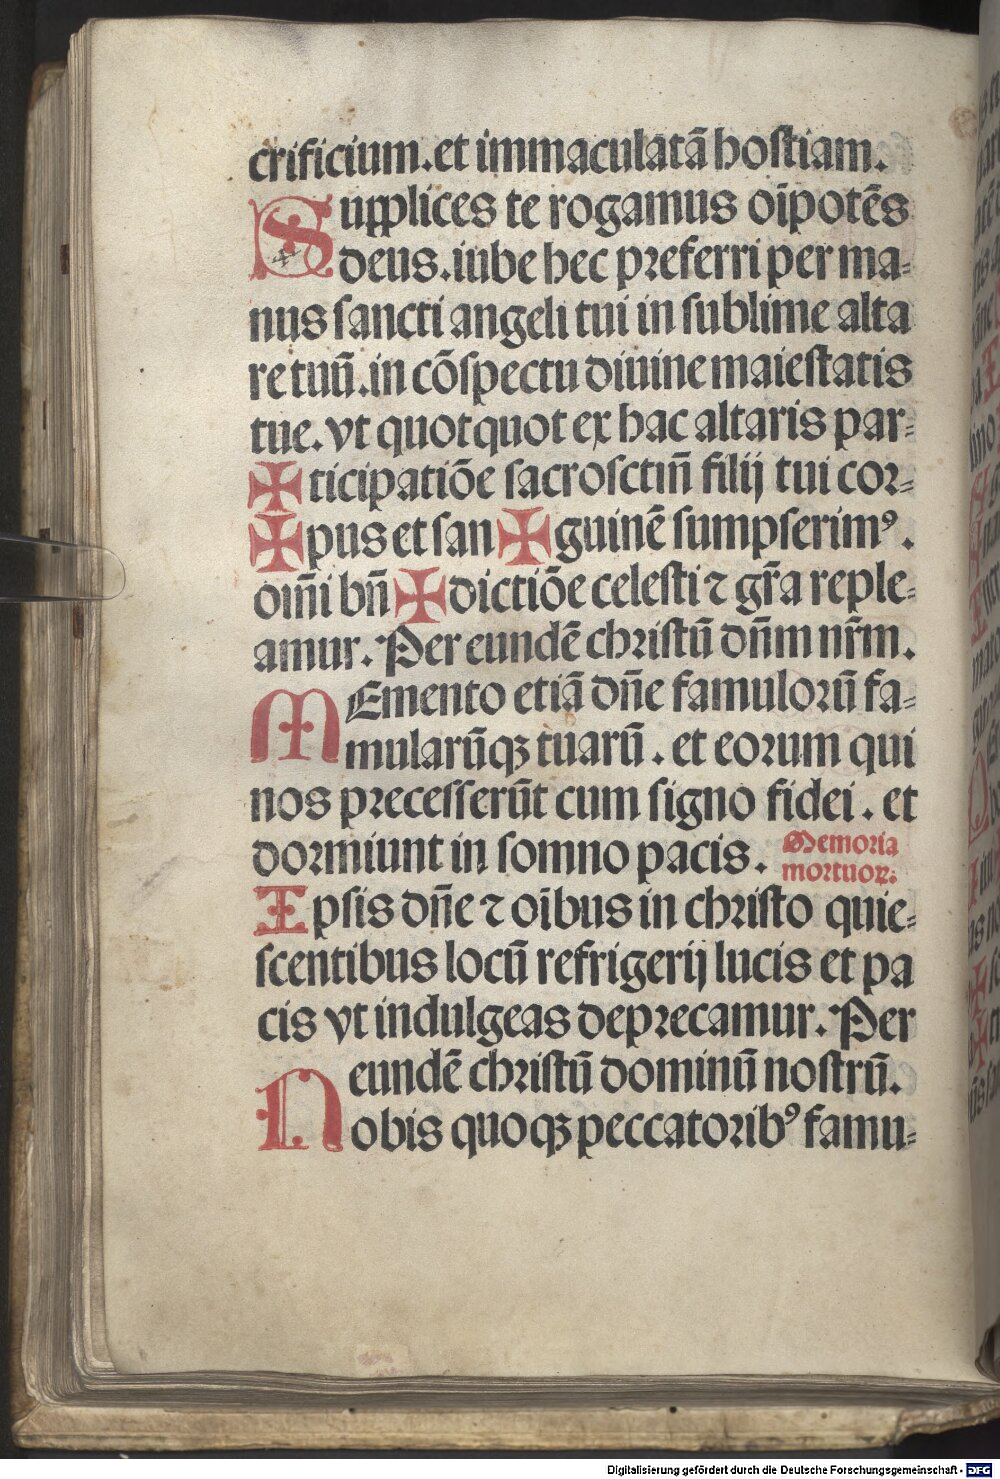 crificium. et immaculatā hostiam.
Supplices te rogamus oīpotēs
deus. iube hec preferri per ma⸗
nus sancti angeli tui in sublime alta
re tuū. in cōspectu diuine maiestatis
tue. vt quotquot ex hac altaris par⸗
✠ ticipatiōe sacrosctīn̄ filij tui cor⸗
✠ pus et san ✠ guinē sumpserimꝰ.
om̄i bn̄ ✠ dictiōe celesti ⁊ gr̄a reple⸗
amur. Per eundē christū dn̄m nr̄m.
MEmento etiā dn̄e famulorū fa⸗
mularūqꝫ tuarū. et eorum qui
nos precesserūt cum signo fidei. et
dormiunt in somno pacis. Memoria
mortuoꝝ:
Ipsis dn̄e ⁊ oībus in christo quie⸗
scentibus locū refrigerij lucis et pa
cis vt indulgeas deprecamur. Per
eundē christū dominū nostrū.
Nobis quoqꝫ peccatoribꝰ famu⸗
Digitalisierung gefördert durch die Deutsche Forschungsgemeinschaft - DFG